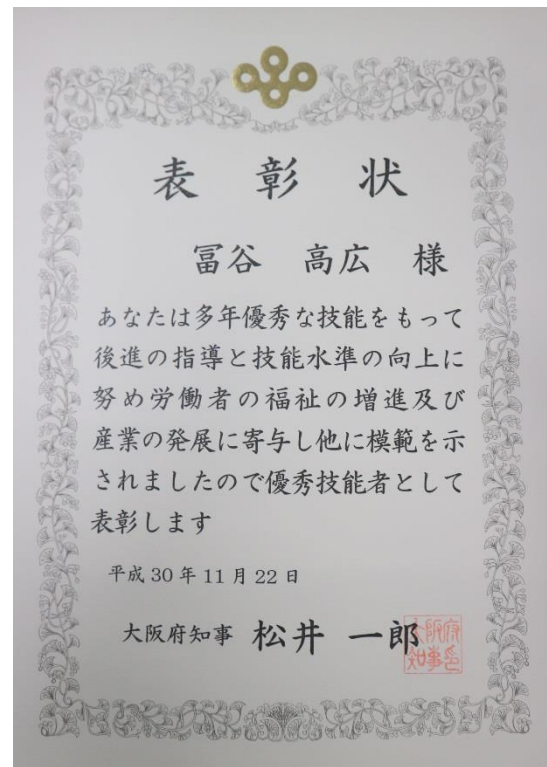 表彰状
冨谷 高広 様
あなたは多年優秀な技能をもって
後進の指導と技能水準の向上に
努め労働者の福祉の増進及び
産業の発展に寄与し他に模範を示
されましたので優秀技能者として
表彰します
平成30年11月22日
大阪府知事 松井 一郎
大阪府
知事印